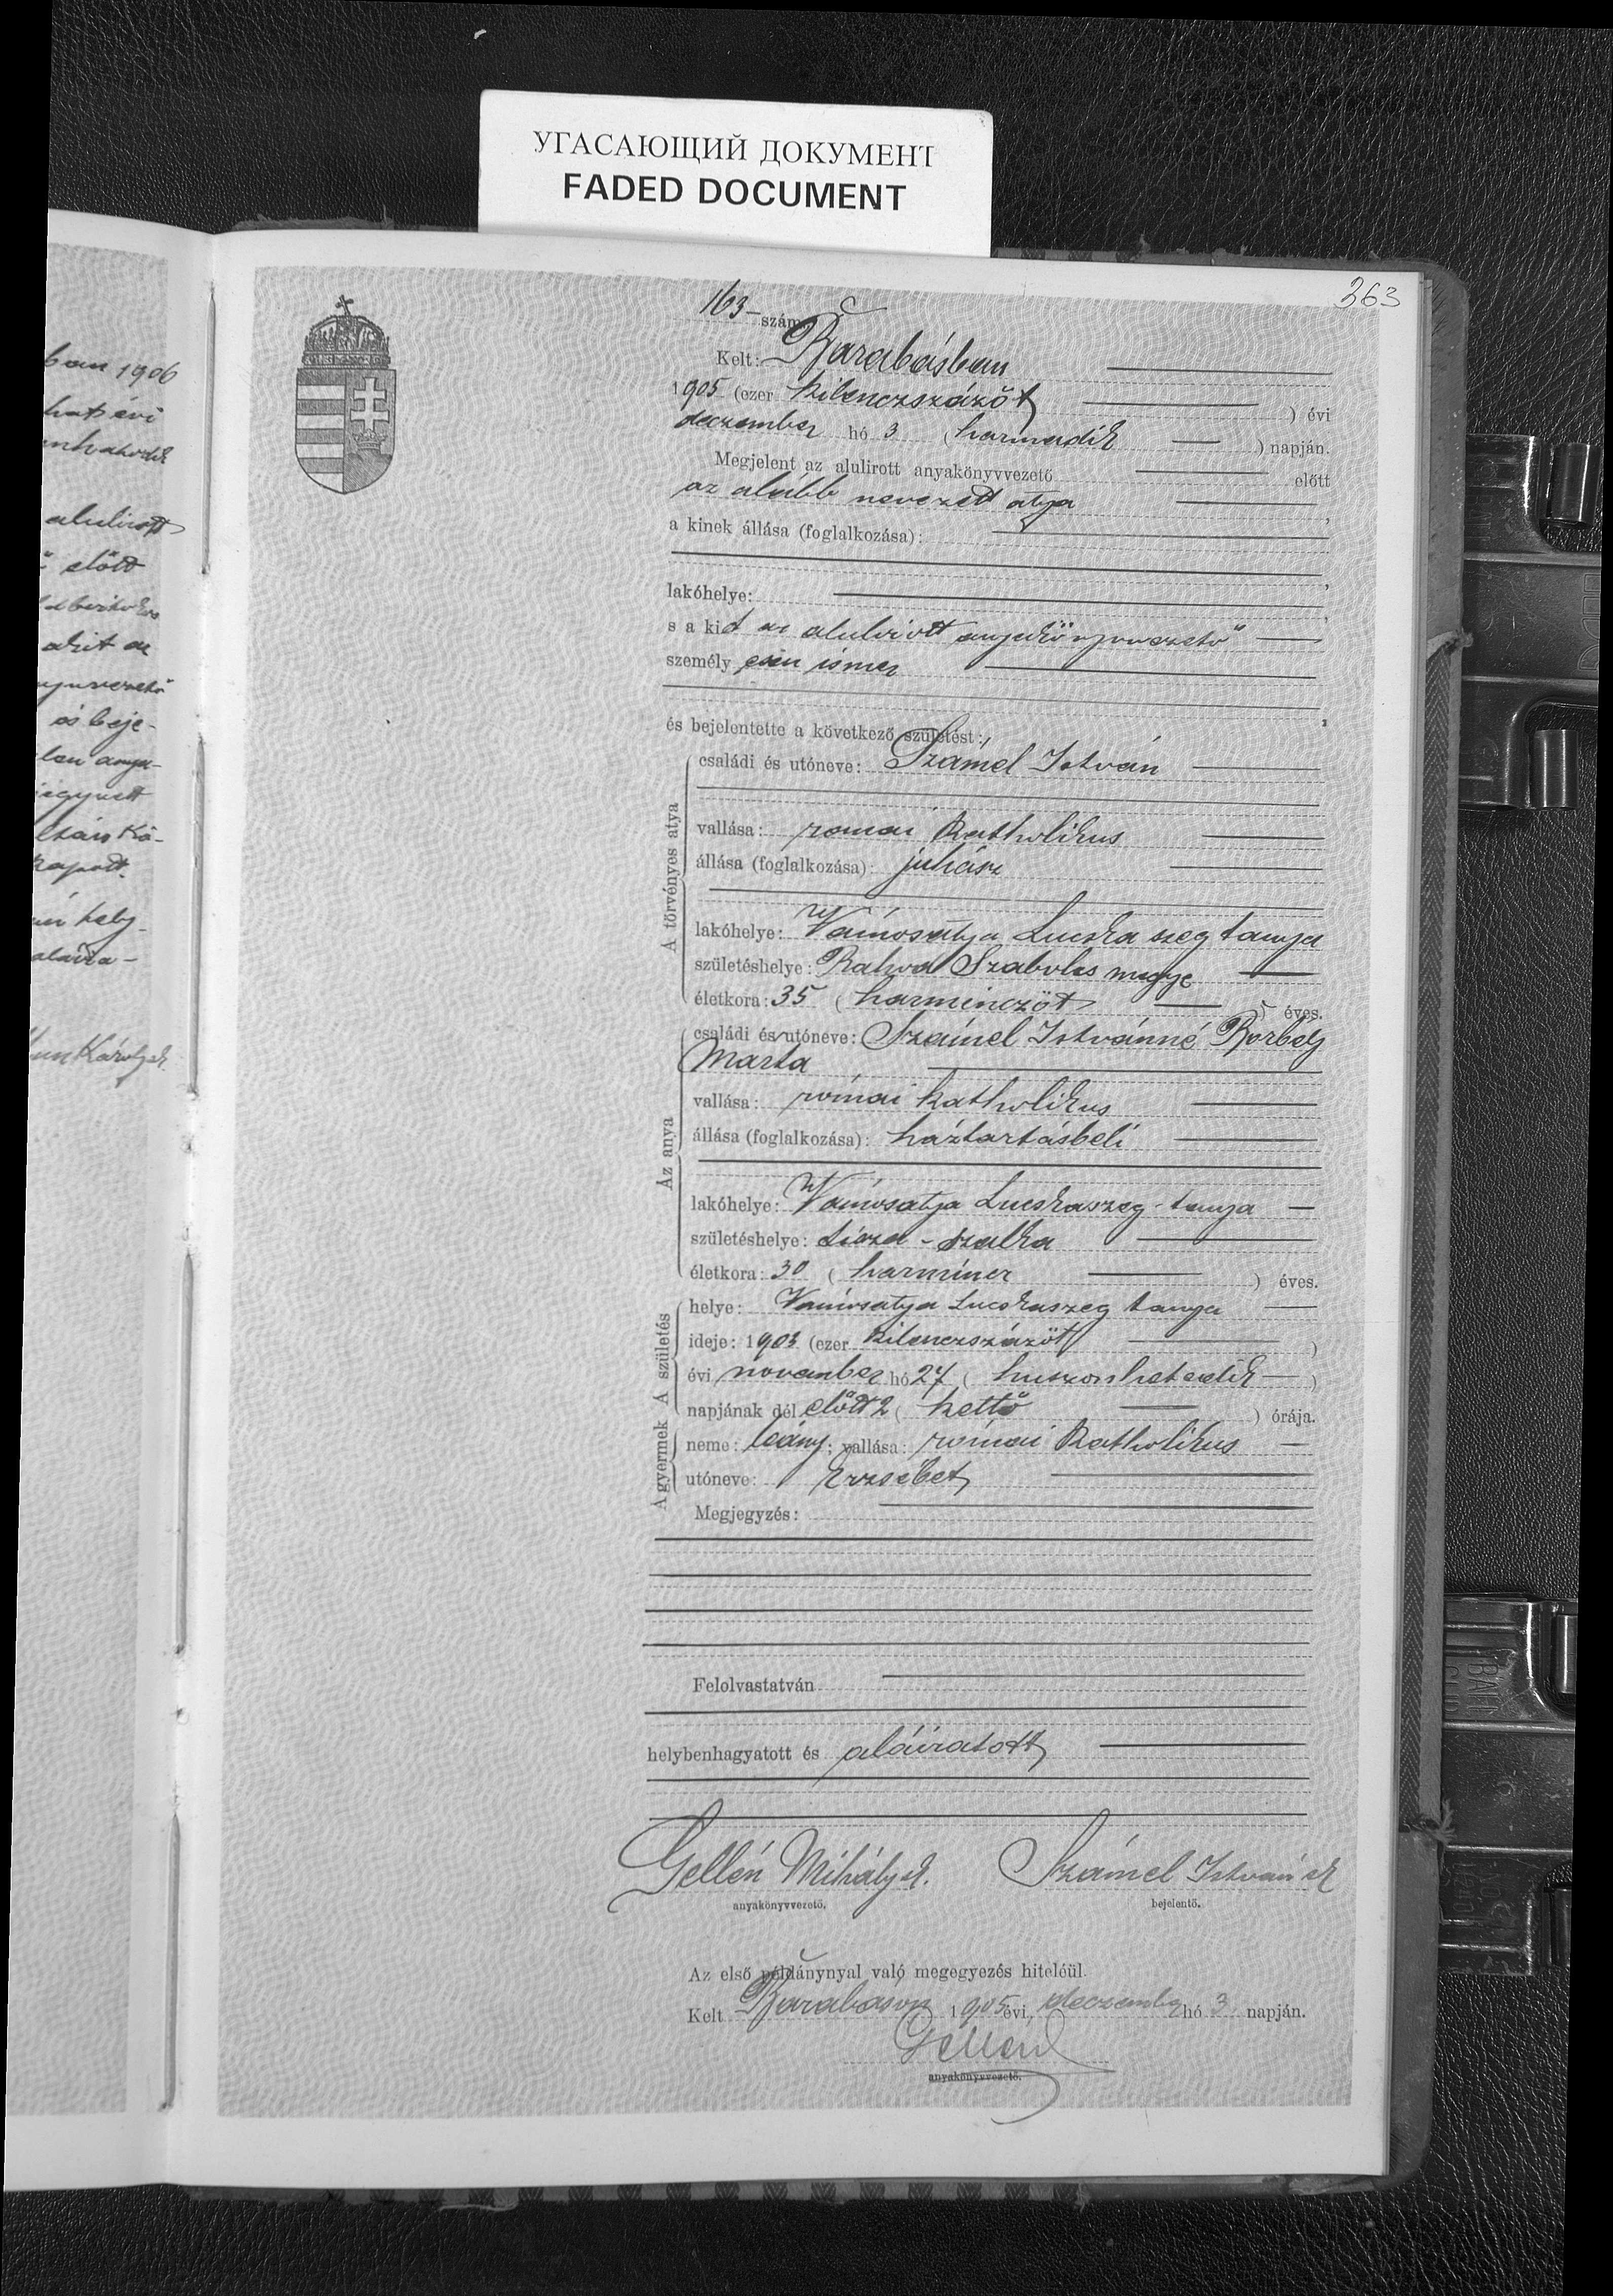 УГАСАЮЩИЙ ДОКУМЕНТ
FADED DOCUMENT
363
ban 1906
hat évi
alulirott
előtt
akit az
és beje-
hely-
aláíra-
163 – szám
Kelt: Barabásban
1905 (ezer kilenczszázöt ) évi
deczember hó 3 (harmadik ) napján.
Megjelent az alulirott anyakönyvvezető előtt
az alább nevezett atya ,
a kinek állása (foglalkozása):
,
lakóhelye: ,
s a kit az alulirott anyakönyvvezető
személyesen ismer
,
és bejelentette a következő születést:
A törvényes atya
családi és utóneve: Számel István
vallása: romai katholikus
állása (foglalkozása): juhász
lakóhelye: Vámosatya Lucska szeg tanya
születéshelye: Szabolcs megye
életkora: 35 (harminczöt ) éves.
Az anya
családi és utóneve: Számel Istvánné, Borbély
Márta
vallása: római katholikus
állása (foglalkozása): háztartásbeli
lakóhelye: Vámosatya Lucskaszeg-tanya
születéshelye: tisza-szalka
életkora: 30 (harmincz ) éves.
A születés
helye: Vámosatya Lucskaszeg tanya
ideje: 1905 (ezer kilenczszázöt )
évi november hó 27 (huszonhetedik )
napjának dél előtt 2 (kettő ) órája.
A gyermek
neme: leány; vallása: római katholikus
utóneve: Erzsébet
Megjegyzés:
Felolvastatván
helybenhagyatott és aláiratott
Gellén Mihály sk. Számel István sk
anyakönyvvezető. bejelentő.
Az első példánynyal való megegyezés hiteléül.
Kelt Barabáson 1905 évi deczember hó 3 napján.
Gellén
anyakönyvvezető.